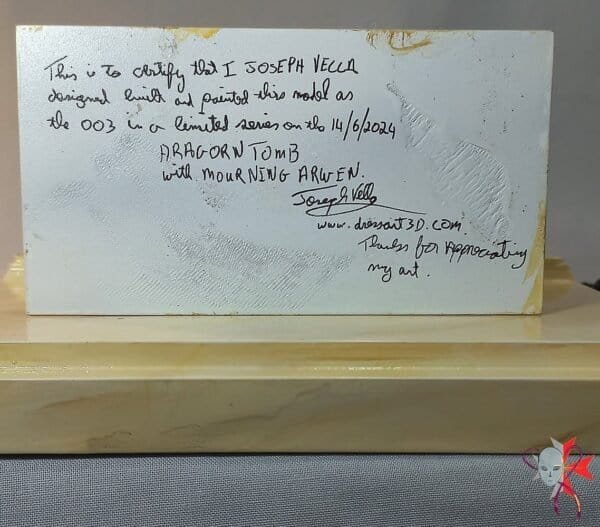 This is to certify that I JOSEPH VELLA
designed built and painted this model as
the 003 in a limited series on the 14/6/2024
ARAGORN TOMB
with MOURNING ARWEN.
Joseph Vella
www.dressart3D.com.
Thanks for Appreciating
my art.